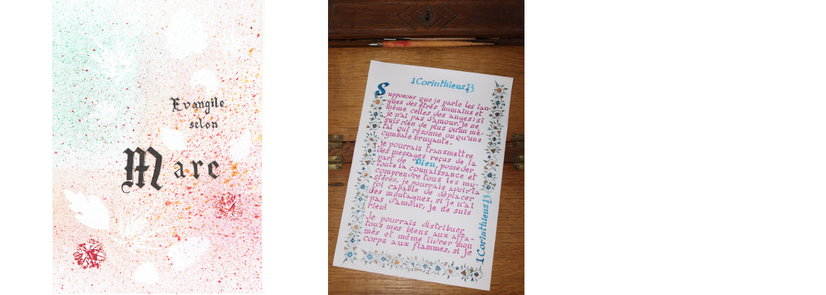 Evangile
selon
Marc
1 Corinthiens 13
Supposons que je parle les lan-
gues des êtres humains et
même celles des anges: si
je n'ai pas d'amour, je ne
suis rien de plus qu'un mé-
tal qui résonne ou qu'une
cymbale bruyante.
Je pourrais transmettre
des messages reçus de la
part de Dieu, posséder
toute la connaissance et
comprendre tous les mys-
tères, je pourrais avoir la
foi capable de déplacer
des montagnes, si je n'ai
pas d'amour, je ne suis
rien!
Je pourrais distribuer
tous mes biens aux affa-
més et même livrer mon
corps aux flammes, si je
1 Corinthiens 13